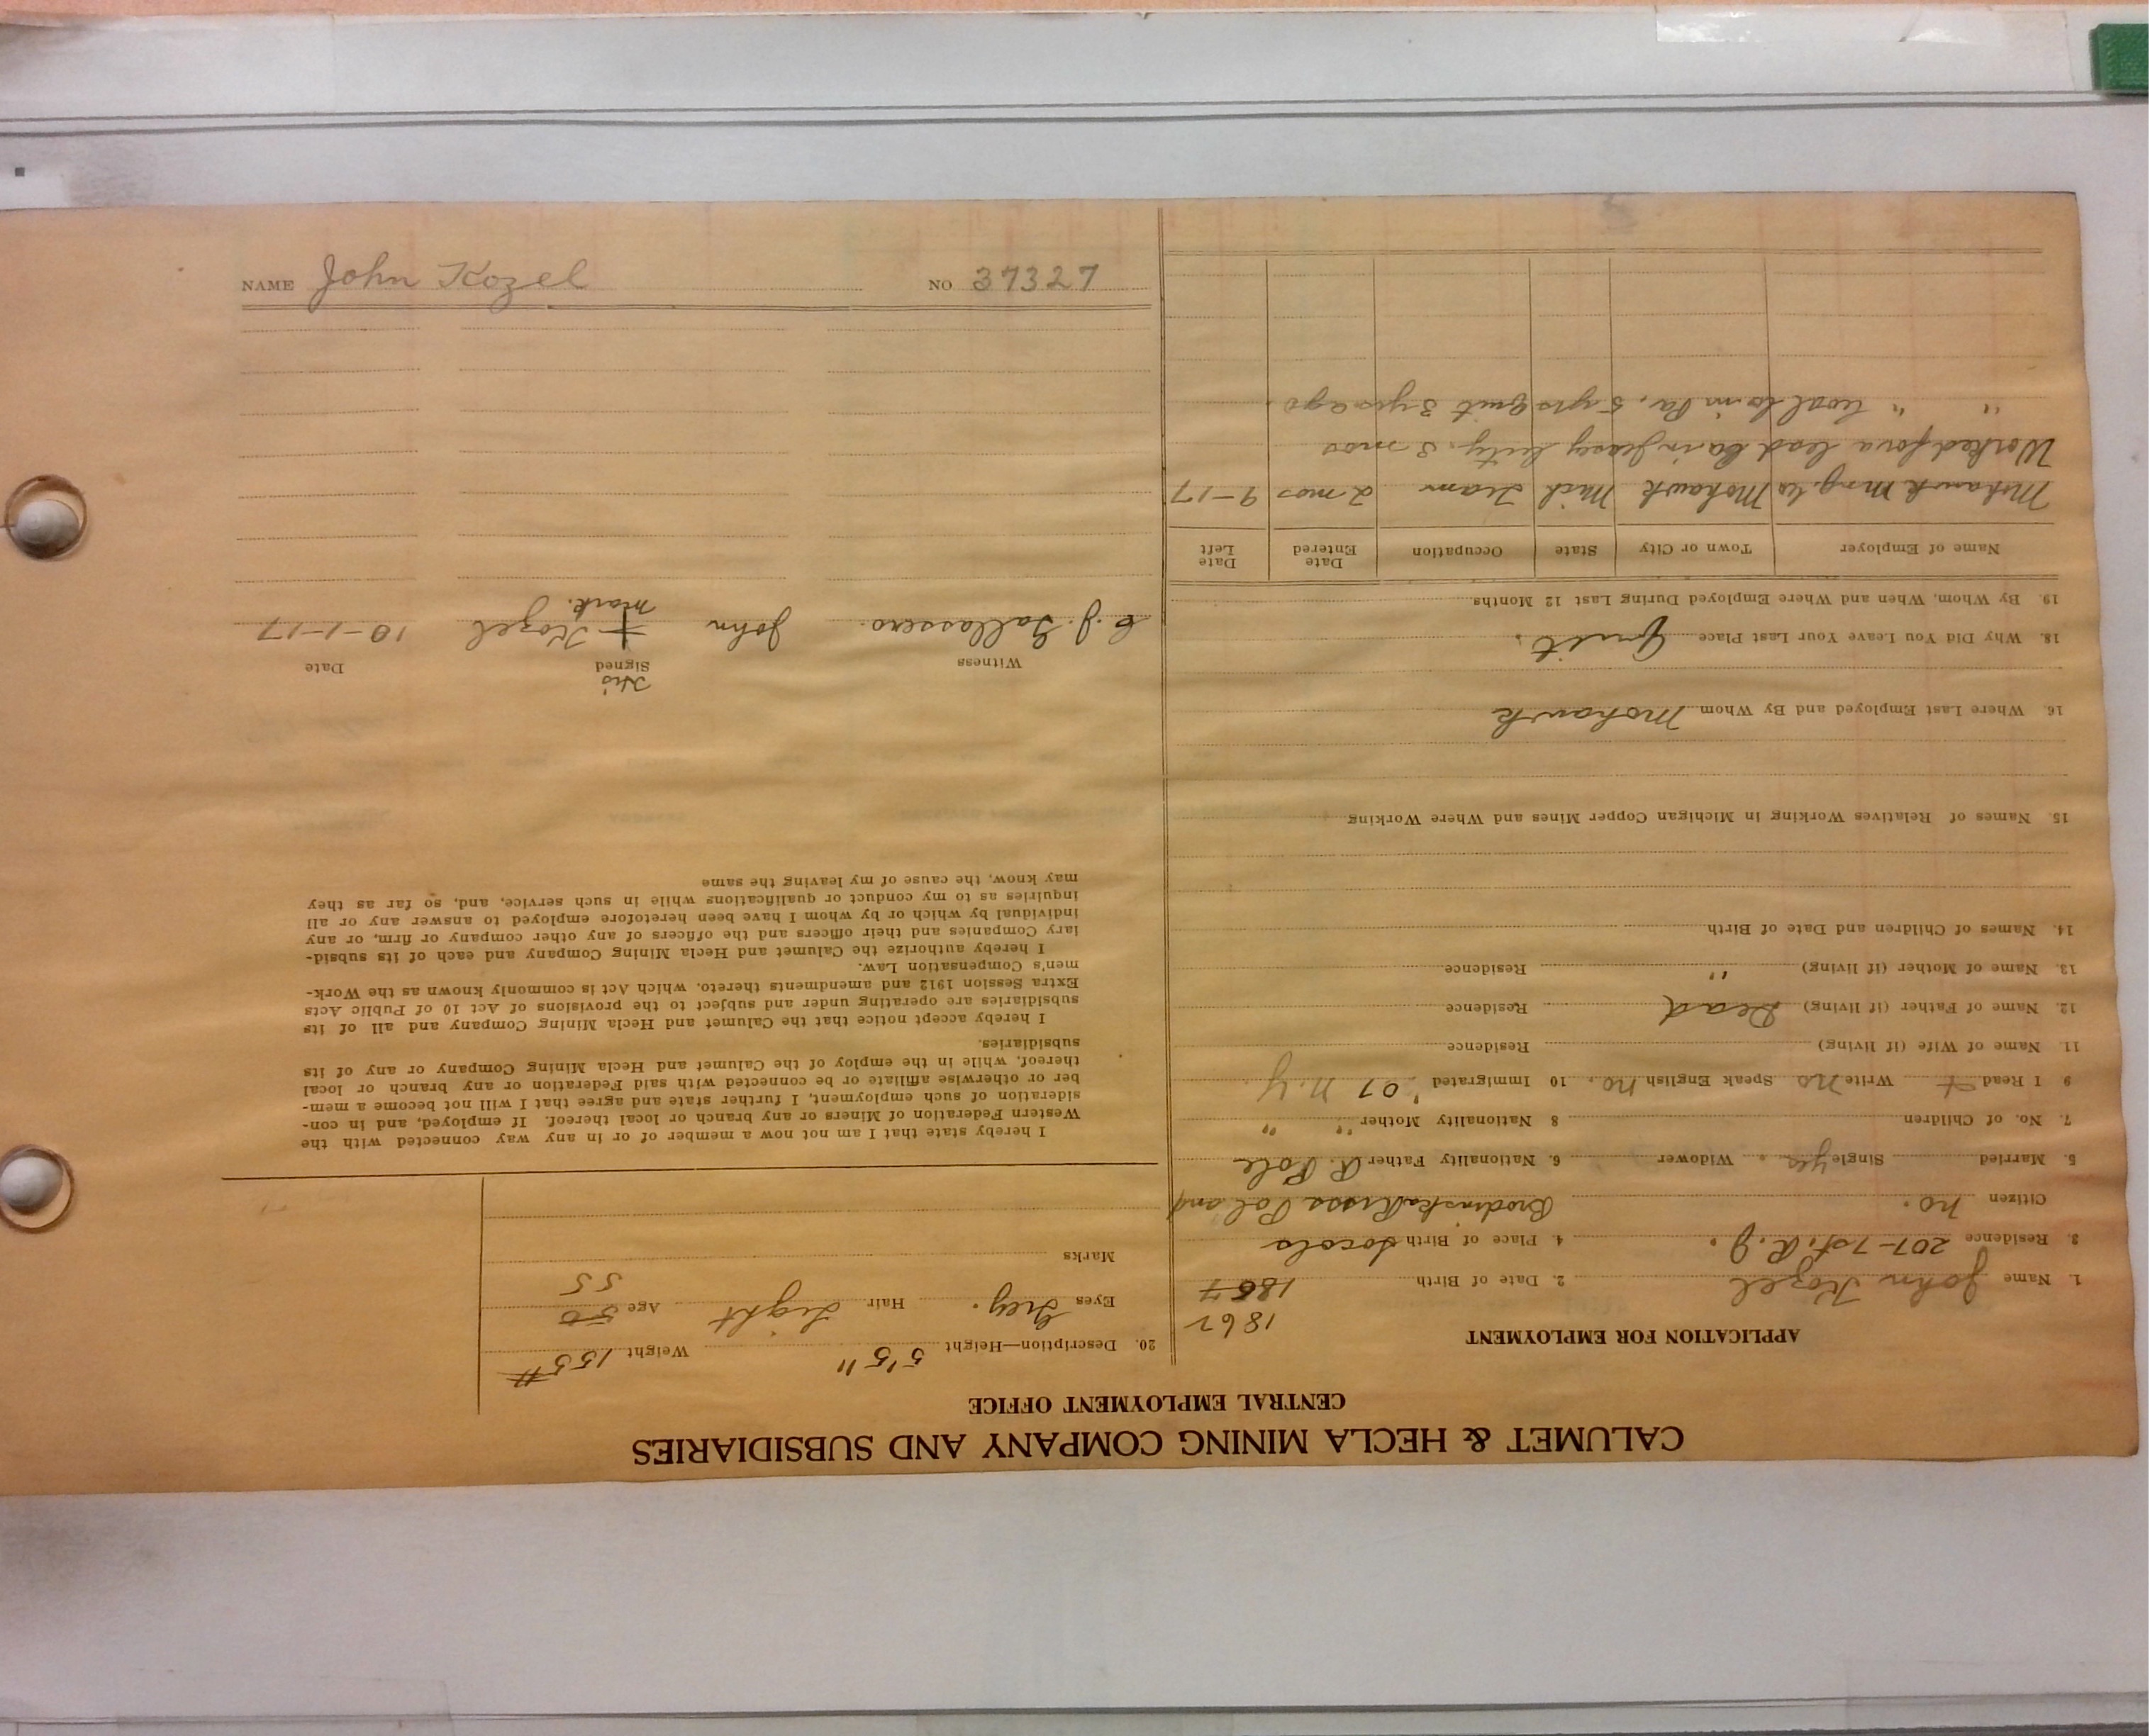 CALUMET & HECLA MINING COMPANY AND SUBSIDIARIES
CENTRAL EMPLOYMENT OFFICE
APPLICATION FOR EMPLOYMENT
1862
1. Name John Kozel 2. Date of Birth 1867
3. Residence 207-7 st. R.J. 4. Place of Birth Socolo
Citizen no. Brodinska Russa Poland
5. Married Single yes. Widower 6. Nationality Father R. Pole
7. No. of Children 8 Nationality Mother " "
9 I Read + Write no Speak English no. 10 Immigrated '07 N.Y.
11. Name of Wife (if living) Residence
12. Name of Father (if living) Dead Residence
13. Name of Mother (if living) " Residence
14. Names of Children and Date of Birth
15. Names of Relatives Working in Michigan Copper Mines and Where Working
16. Where Last Employed and By Whom Mohawk
18. Why Did You Leave Your Last Place Quit.
19. By Whom, When and Where Employed During Last 12 Months
Name of Employer Town or City State Occupation Date Entered Date Left
Mohawk Mng. Co Mohawk Mich Tram 2 mos 9-17
Worked for a lead Co in Jersey City. 3 mos
" " Coal Co in Pa. 5 yrs Quit 3 yrs ago.
20. Description—Height 5'5" Weight 155#
Eyes Grey. Hair Light Age 50
55
Marks
I hereby state that I am not now a member of or in any way connected with the
Western Federation of Miners or any branch or local thereof. If employed, and in con-
sideration of such employment, I further state and agree that I will not become a mem-
ber or otherwise affiliate or be connected with said Federation or any branch or local
thereof, while in the employ of the Calumet and Hecla Mining Company or any of its
subsidiaries.
I hereby accept notice that the Calumet and Hecla Mining Company and all of its
subsidiaries are operating under and subject to the provisions of Act 10 of Public Acts
Extra Session 1912 and amendments thereto, which Act is commonly known as the Work-
men's Compensation Law.
I hereby authorize the Calumet and Hecla Mining Company and each of its subsid-
iary Companies and their officers and the officers of any other company or firm, or any
individual by which or by whom I have been heretofore employed to answer any or all
inquiries as to my conduct or qualifications while in such service, and, so far as they
may know, the cause of my leaving the same
His
Witness Signed Date
C. J. Gallassero. John + Kozel 10-1-17
mark.
NAME John Kozel NO 37327